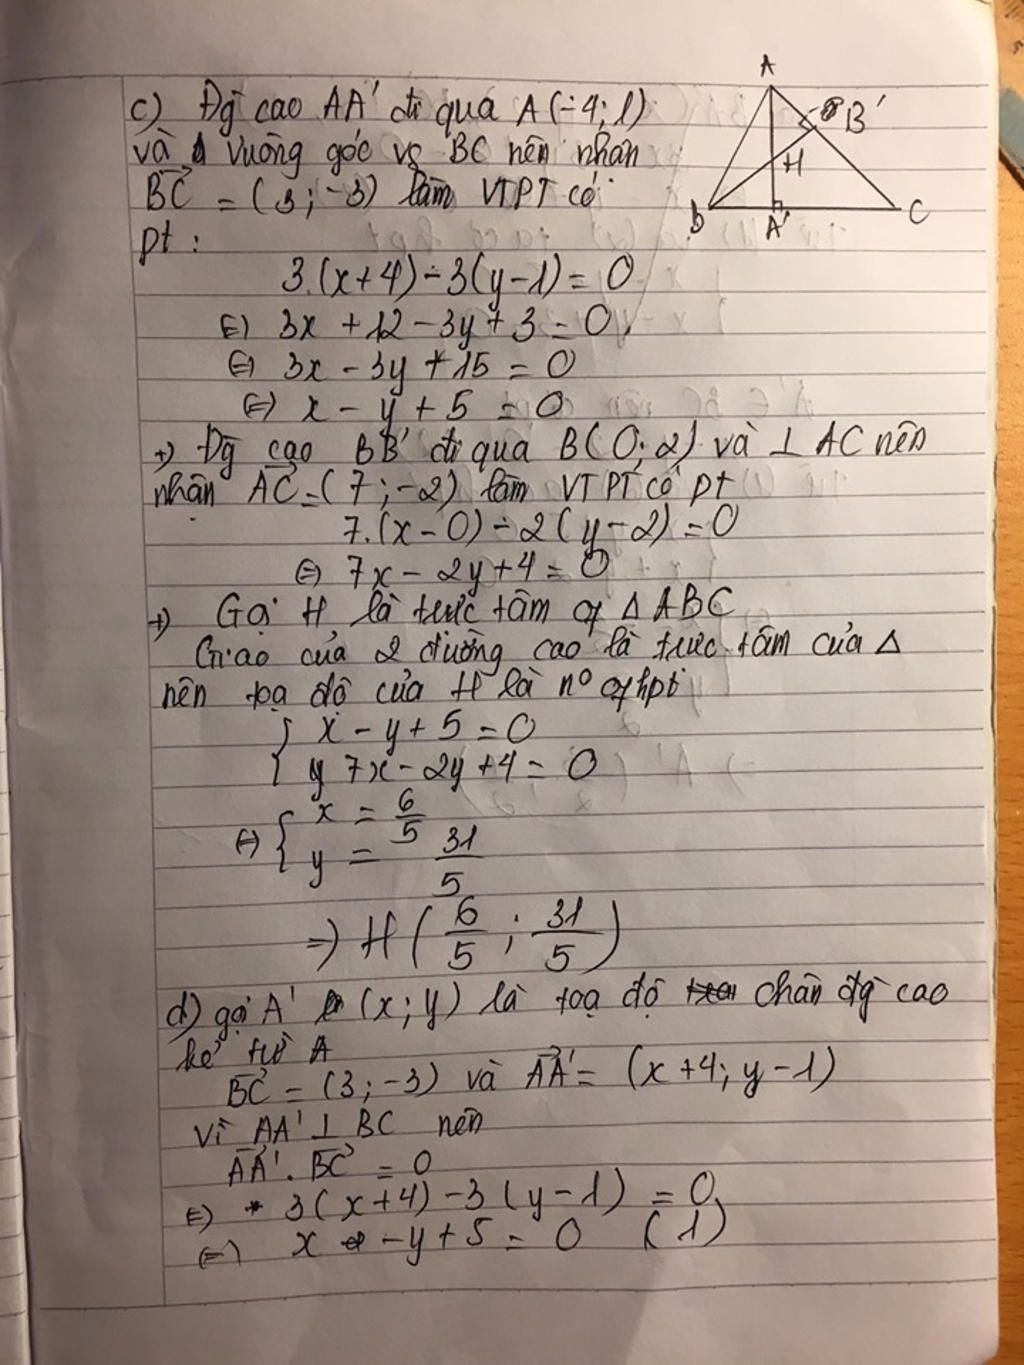 A
B'
H
B
A'
C
c) Đg cao AA' đi qua A(-4;1)
và vuông góc vs BC nên nhận
BC = (3;-3) làm VTPT có
pt :
3.(x+4)-3(y-1)=0
⇔ 3x+12-3y+3=0
⇔ 3x-3y+15=0
⇔ x-y+5=0
+) Đg cao BB' đi qua B(0;2) và ⊥ AC nên
nhận AC=(7;-2) làm VTPT có pt
7.(x-0)-2(y-2)=0
⇔ 7x-2y+4=0
+) Gọi H là trực tâm of △ABC
Giao của 2 đường cao là trực tâm của △
nên tọa độ của H là nº of hpt
{ x-y+5=0
{ 7x-2y+4=0
⇔ { x = 6/5
{ y = 31/5
⇒ H(6/5 ; 31/5)
d) gọi A' (x;y) là toạ độ chân đg cao
kẻ từ A
BC = (3;-3) và AA' = (x+4; y-1)
Vì AA' ⊥ BC nên
AA'.BC = 0
⇔ 3(x+4)-3(y-1) = 0
⇔ x -y+5=0 (1)